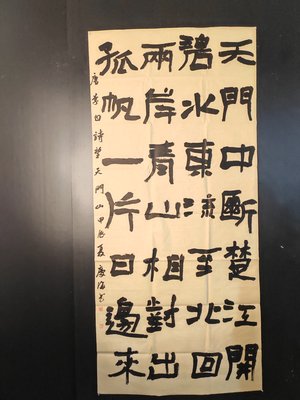 天門中斷楚江開
碧水東流至北回
兩岸青山相對出
孤帆一片日邊來
唐李白詩望天門山甲夏